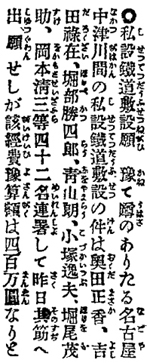 〇私設鐵道敷設願　豫て噂のありたる名古屋
中津川間の私設鐵道敷設の件は奥田正香、吉
田祿在、堀部勝四郎、靑山朗、小塚逸夫、堀尾茂
助、岡本淸三等四十二名連署して昨日其筋へ
出願せしが該經費豫算額は四百万圓なりと